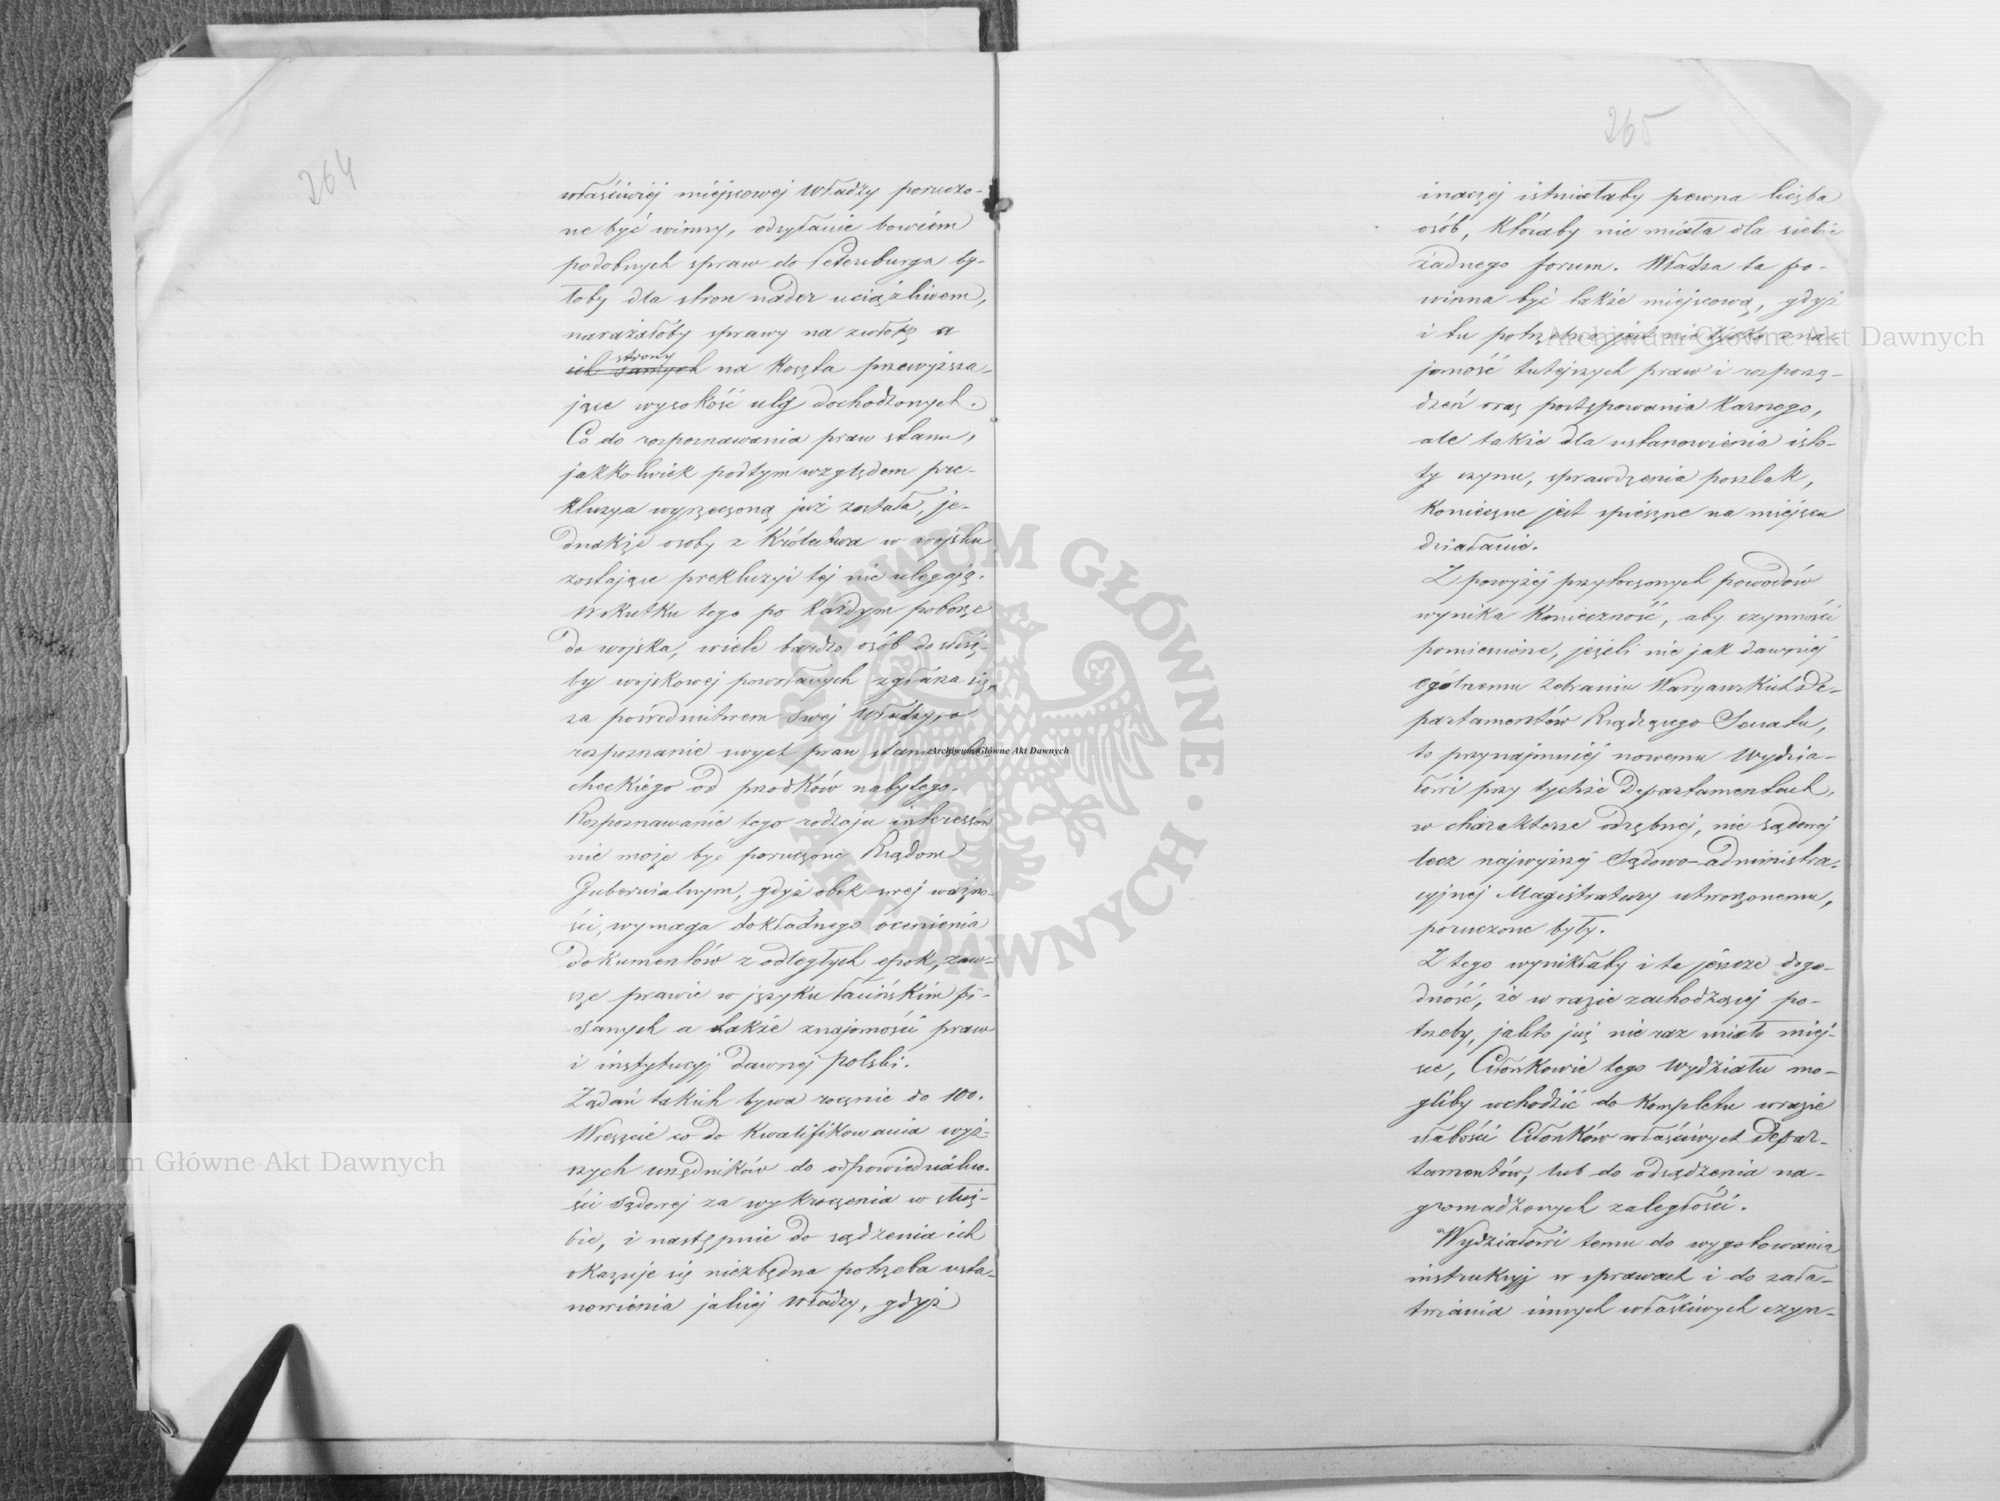 264
właściwéj miejscowéj Władzy poruczo-
ne być winny, odsyłanie bowiem
podobnych spraw do Petersburga by-
łoby dla stron nader uciążliwem,
narażałoby sprawy na zwłokę a
strony
ich samych na koszta przewyższa-
jące wysokość ulg dochodzonych.
Co do rozpoznawania praw stanu,
jakkolwiek pod tym względem pre-
kluzya wyrzeczoną już została, je-
dnakże osoby z Królestwa w wojsku
zostające prekluzyi téj nie ulegają.
Wskutku tego po każdym poborze
do wojska, wiele bardzo osób do służ-
by wojskowej powołanych zgłasza się
za pośrednictwem swéj Władzy, o
rozpoznanie swych praw stanu szla-
checkiego od przodków nabytego.
Rozpoznawanie tego rodzaju interessów
nie może być poruczone Rządom
Gubernialnym, gdyż obok swej ważno-
ści, wymaga dokładnego ocenienia
dokumentów z odległych epok, zaw-
sze prawie w języku łacińskim pi-
sanych a także znajomości praw
i instytucyj dawnéj Polski.
Żądań takich bywa rocznie do 100.
Wreszcie co do kwalifikowania wyż-
szych urzędników do odpowiedzialno-
ści sądowej za wykroczenia w służ-
bie, i następnie do sądzenia ich
okazuje się niezbędna potrzeba usta-
nowienia jakiéj Władzy, gdyż
265
inaczéj istniałaby pewna liczba
osób, któraby nie miała dla siebie
żadnego forum. Władza ta po-
winna być także miejscową, gdyż
i tu potrzebną jest nie tylko zna-
jomość tutejszych praw i rozporzą-
dzeń oraz postępowania karnego,
ale także dla ustanowienia isto-
ty czynu, sprawdzenia poszlak,
konieczne jest spieszne na miejscu
działanie.
Z powyżéj przytoczonych powodów
wynika konieczność, aby czynności
pomienione, jeżeli nie jak dawniéj
Ogólnemu Zebraniu Warszawskich De-
partamentów Rządzącego Senatu,
to przynajmniéj nowemu Wydzia-
łowi przy tychże Departamentach,
w charakterze odrębnéj, nie sądowej
lecz najwyższéj Sądowo-administra-
cyjnéj Magistratury utworzonemu,
poruczone były.
Z tego wynikłaby i ta jeszcze dogo-
dność, że w razie zachodzącéj po-
trzeby, jak to już nie raz miało miéj-
sce, Członkowie tego Wydziału mo-
gliby wchodzić do kompletu w razie
słabości Członków właściwych Depar-
tamentów, lub do odsądzenia na-
gromadzonych zaległości.
Wydziałowi temu do wygotowania
instrukcyj w sprawach i do zała-
twiania innych właściwych czyn-
Archiwum Główne Akt Dawnych
Archiwum Główne Akt Dawnych
Archiwum Główne Akt Dawnych
ARCHIWUM GŁÓWNE AKT DAWNYCH